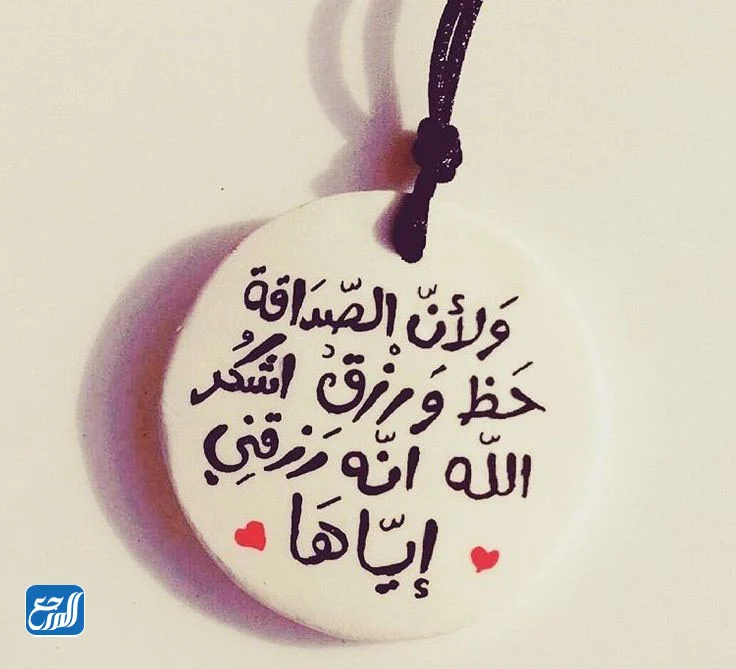 وَلأنّ الصّدَاقة
حَظ وَرزْقٌ اشكُر
اللّه انّه رَزقنِي
إيّاهَا
المرجع